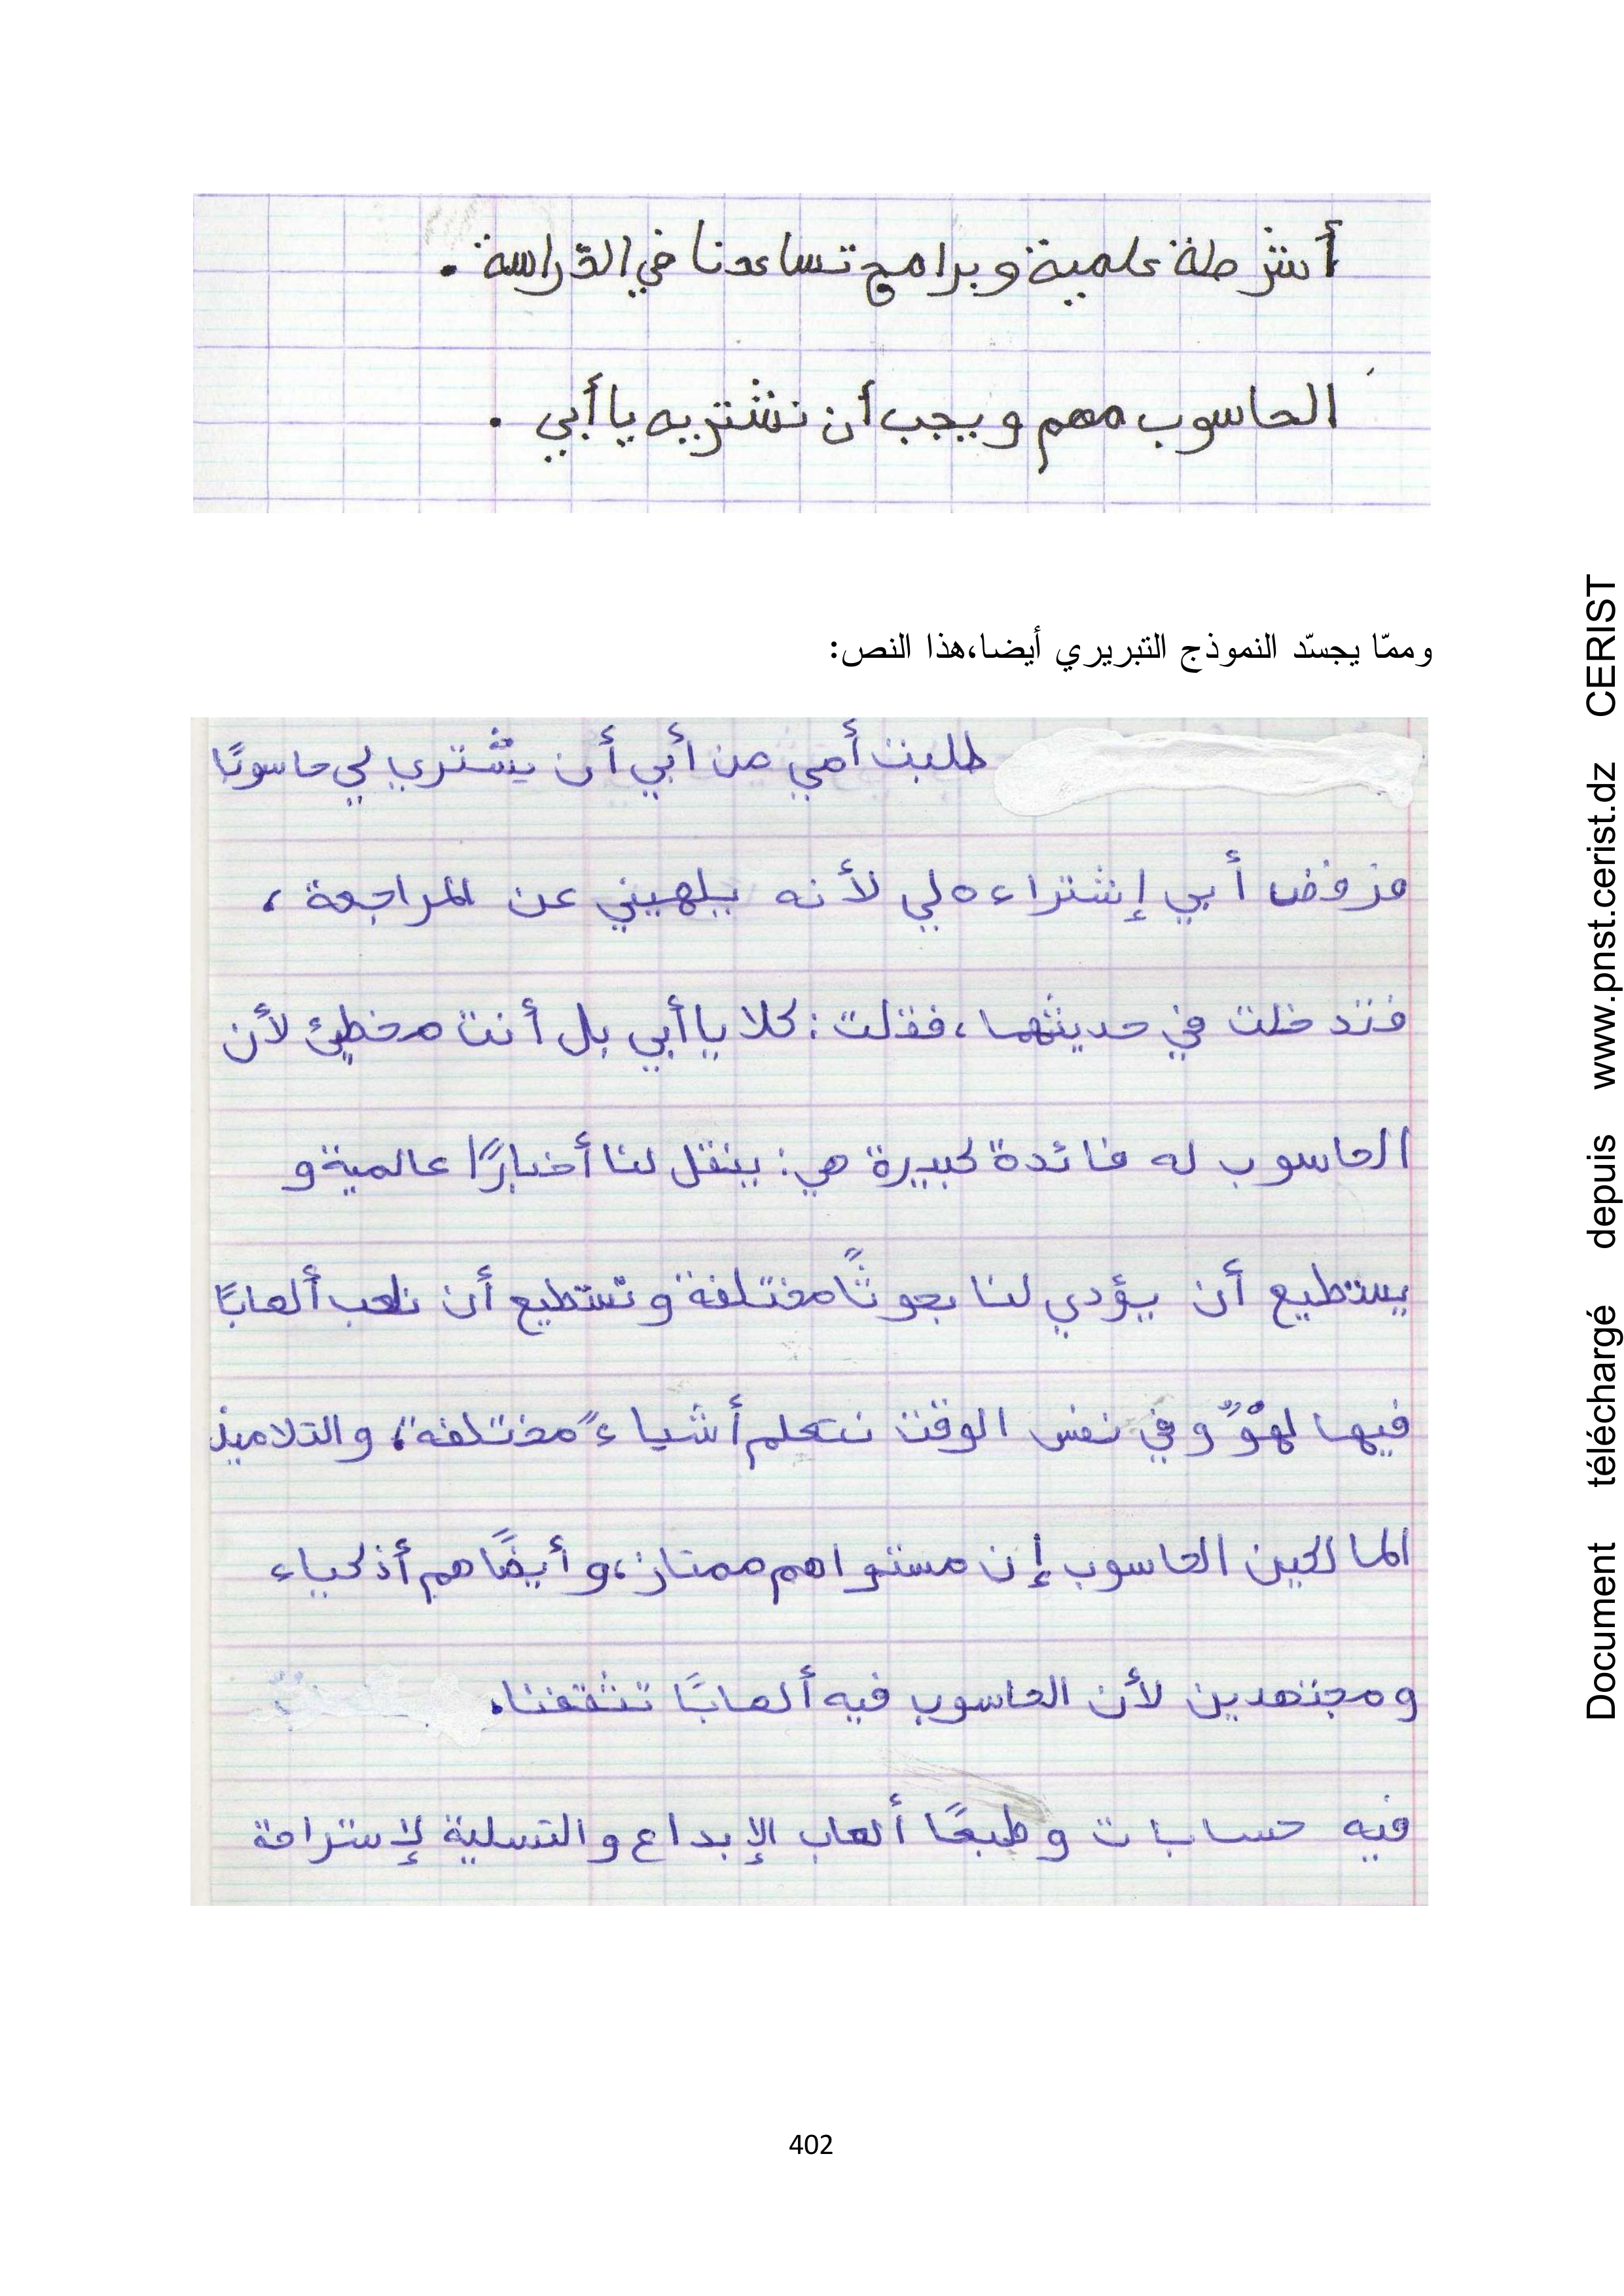 أشرطة علمية وبرامج تساعدنا في الدّراسة.
الحاسوب مهم ويجب أن نشتريه يا أبي.
وممّا يجسّد النموذج التبريري أيضا،هذا النص:
طلبت أمي من أبي أن يشتري لي حاسوبًا
فرفض أبي إشتراءه لي لأنه يلهيني عن المراجعة،
فتدخلت في حديثهما، فقلت: كلا يا أبي بل أنت مخطئ لأن
الحاسوب له فائدة كبيرة هي: ينقل لنا أخبارًا عالمية و
يستطيع أن يؤدي لنا بحوثًا مختلفة ونستطيع أن نلعب ألعابًا
فيها لهوٌ وفي نفس الوقت نتعلم أشياءً مختلفة، والتلاميذ
المالكين الحاسوب إن مستواهم ممتاز، وأيضًا هم أذكياء
ومجتهدين لأن الحاسوب فيه ألعابًا تثقفنا.
فيه حسابات وطبعًا ألعاب الإبداع والتسلية لإستراحة
402
Document téléchargé depuis www.pnst.cerist.dz CERIST